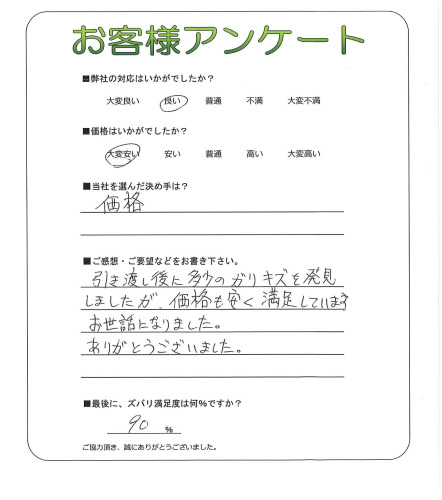 お客様アンケート
■弊社の対応はいかがでしたか？
大変良い 良い 普通 不満 大変不満
■価格はいかがでしたか？
大変安い 安い 普通 高い 大変高い
■当社を選んだ決め手は？
価格
■ご感想・ご要望などをお書き下さい。
引き渡し後に多少のガリキズを発見
しましたが、価格も安く満足しています
お世話になりました。
ありがとうございました。
■最後に、ズバリ満足度は何%ですか？
90 %
ご協力頂き、誠にありがとうございました。